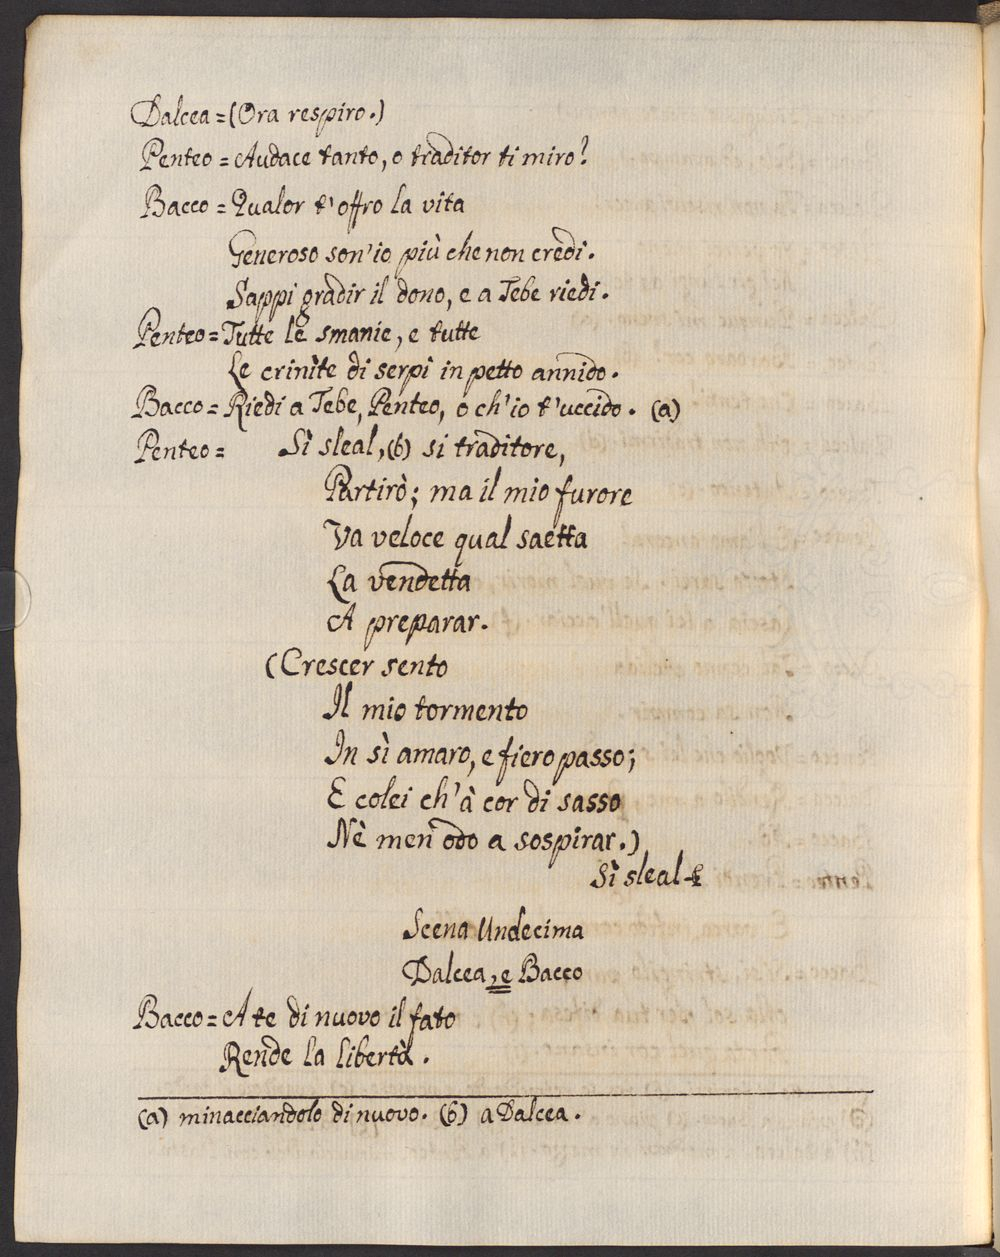 Dalcea = (Ora respiro.)
Penteo = Audace tanto, o traditor ti miro?
Bacco = Qualor t'offro la vita
Generoso son'io più che non credi.
Sappi gradir il dono, e a Tebe riedi.
Penteo = Tutte le smanie, e tutte
Le crinite di serpi in petto annido.
Bacco = Riedi a Tebe, Penteo, o ch'io t'uccido. (a)
Penteo = Sì sleal, (b) si traditore,
Partirò; ma il mio furore
Va veloce qual saetta
La vendetta
A preparar.
(Crescer sento
Il mio tormento
In sì amaro, e fiero passo;
E colei ch'à cor di sasso
Nè men odo a sospirar.)
Sì sleal
Scena Undecima
Dalcea, e Bacco
Bacco = A te di nuovo il fato
Rende la libertà.
(a) minacciandolo di nuovo. (b) a Dalcea.